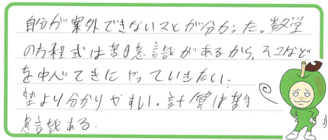 自分が案外できないことが分かった。数学
の方程式は苦手意識があるから、そこなど
を中心てきにやっていきたい。
塾より分かりやすい。計算は苦手
意識ある。